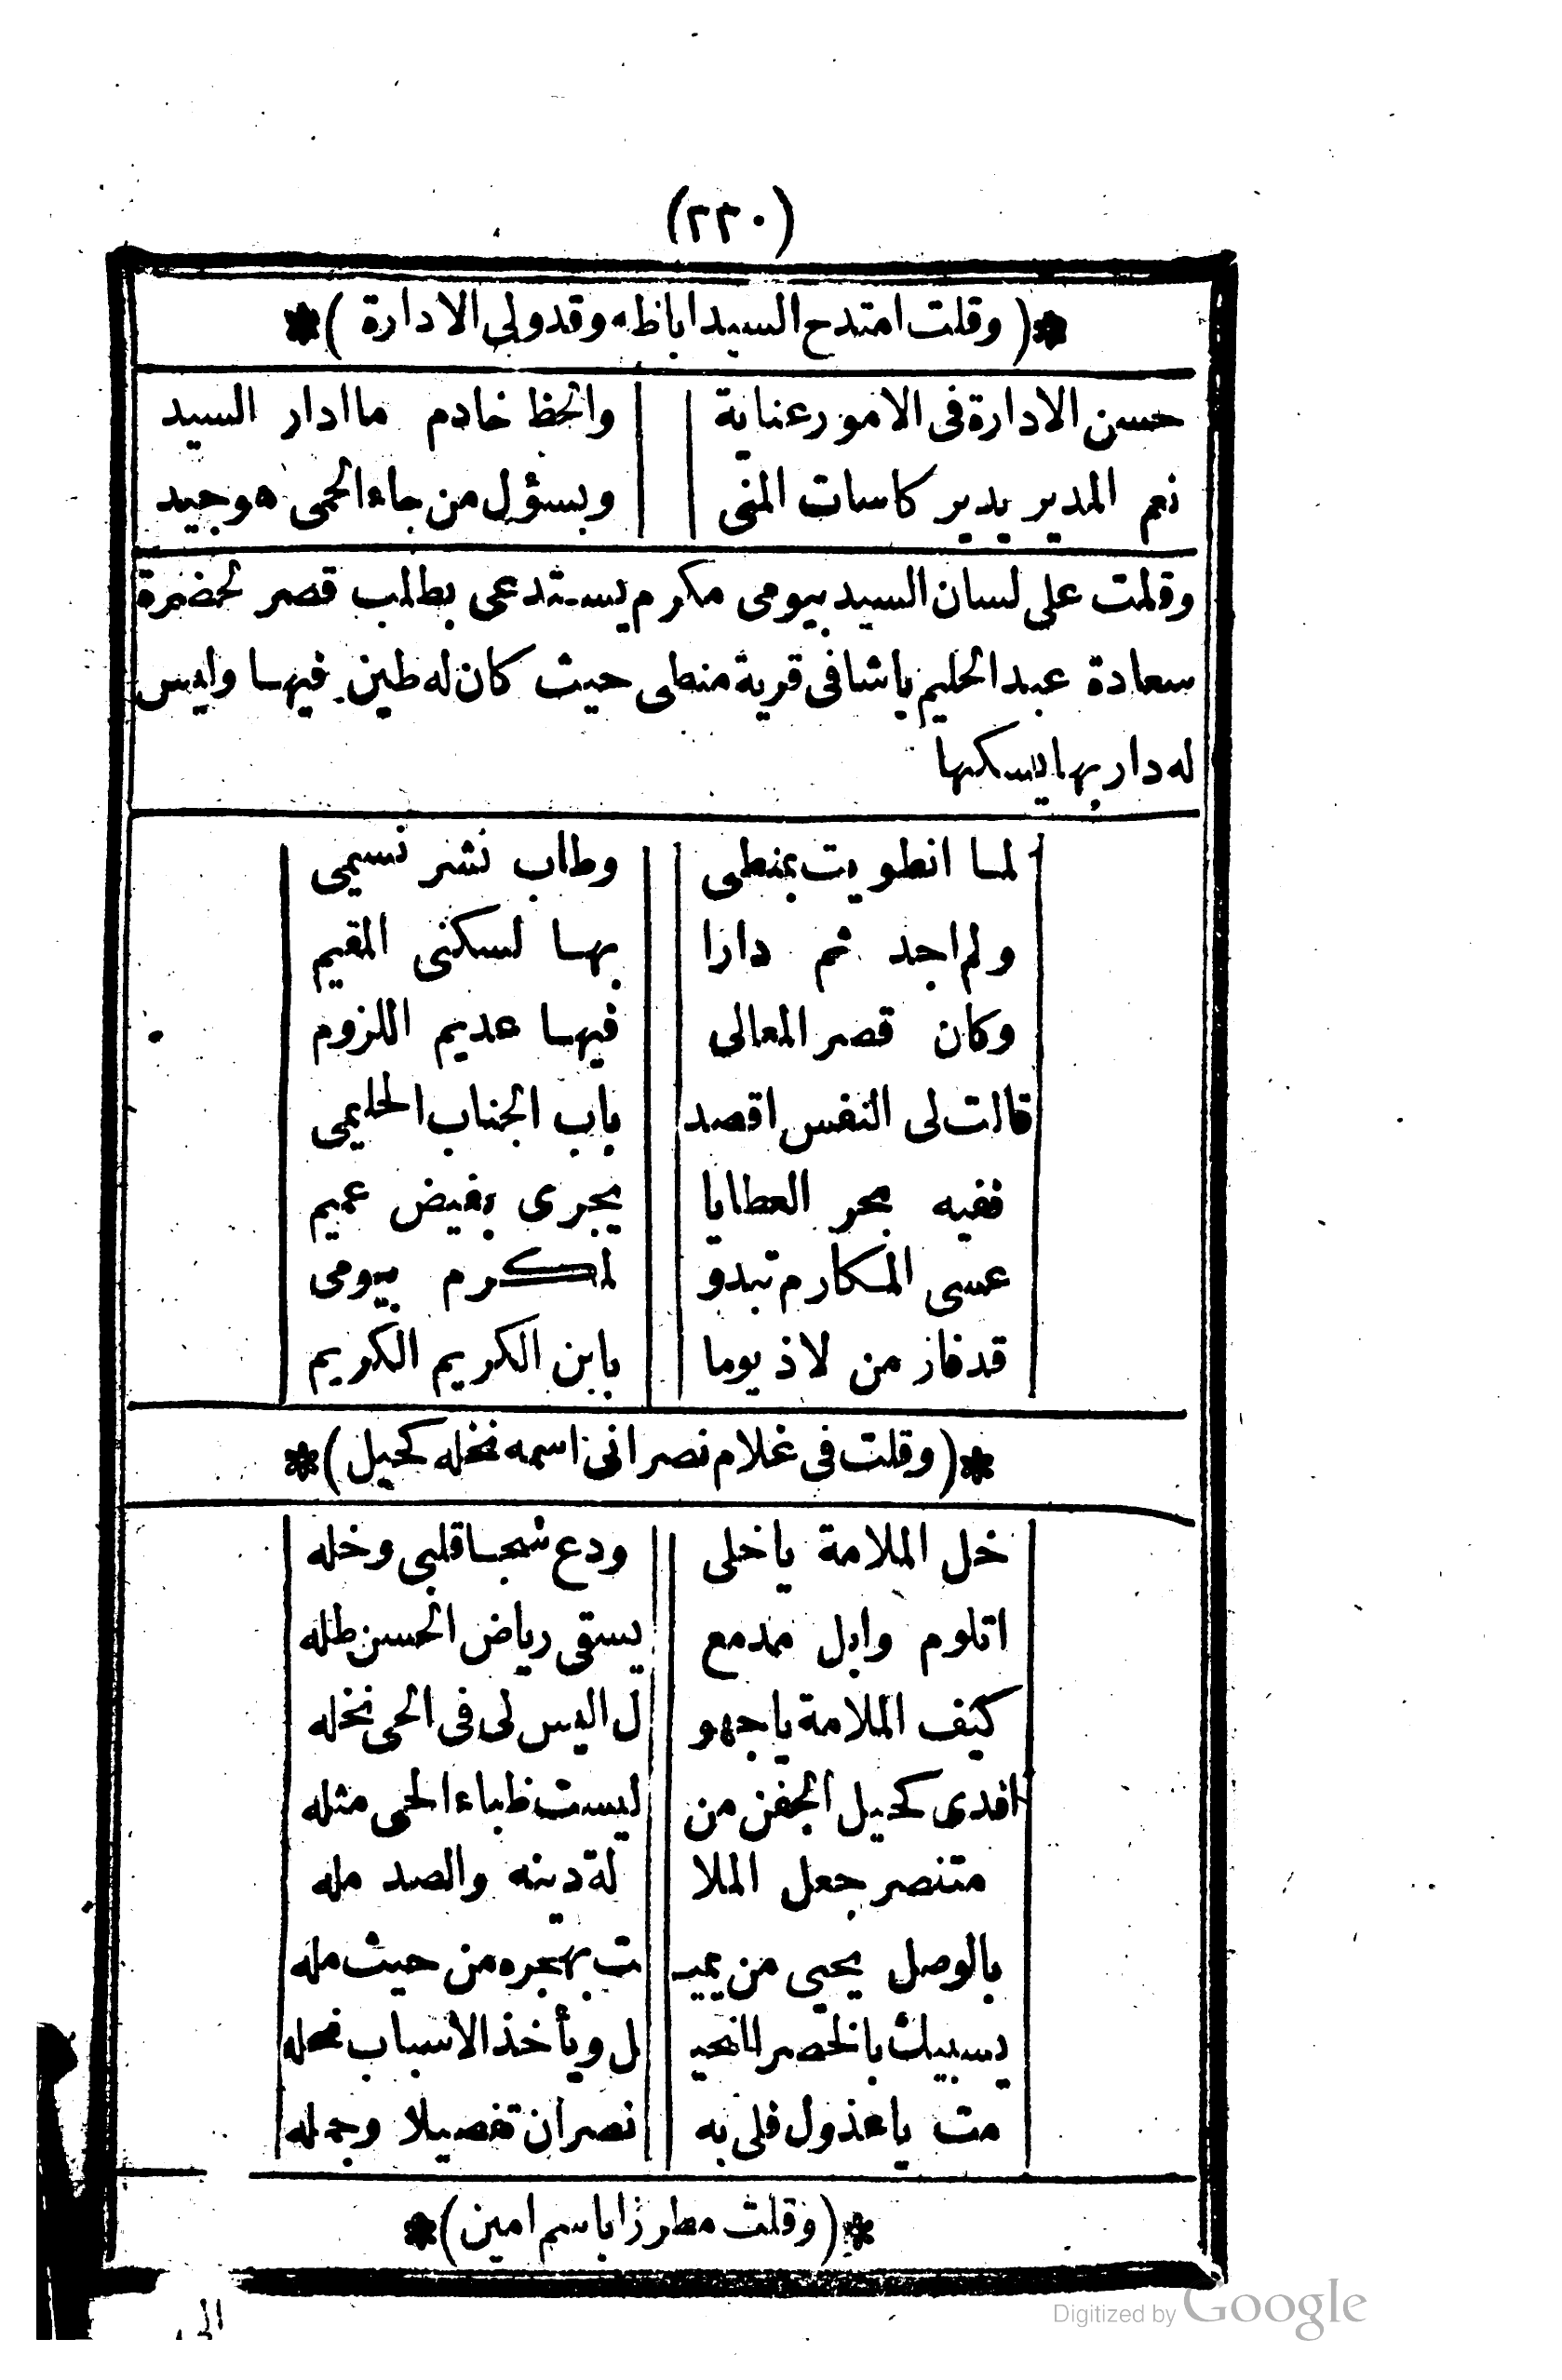 (٢٢٠)
*(وقلت امتدح السيد اباظه وقد ولى الادارة)*
حسن الادارة فى الامور عناية والحظ خادم ما ادار السيد
نعم المدير يدير كاسات المنى وبسؤل من جاء الحمى هو جيد
وقلت على لسان السيد بيومى مكرم يستدعى بطلب قصر لحضرة
سعادة عبد الحليم باشا فى قرية منطى حيث كان له طين فيها وليس
له دار بها يسكنها
لما انطويت بمنطى وطاب نشر نسيمى
ولم اجد ثم دارا بها لسكنى المقيم
وكان قصر المعالى فيها عديم اللزوم
قالت لى النفس اقصد باب الجناب الحليمى
ففيه بحر العطايا يجرى بفيض عميم
عسى المكارم تبدو لمكرم بيومى
قد فاز من لاذ يوما بابن الكريم الكريم
*(وقلت فى غلام نصرانى اسمه نخله كحيل)*
خل الملامة يا خلى ودع شجا قلبى وخله
اتلوم وابل مدمع يسقى رياض الحسن طله
كيف الملامة يا جهو ل اليس لى فى الحى نخله
افدى كحيل الجفن من ليست ظباء الحى مثله
متنصر جعل الملا لة دينه والصد مله
بالوصل يحيى من يميـ ت بهجره من حيث مله
يسبيك بالخصر النحيـ ل ويأخذ الاسباب نحله
مت يا عذول فلى به نصران تفصيلا وجمله
*(وقلت مطرزا باسم امين)*
الى
Digitized by Google